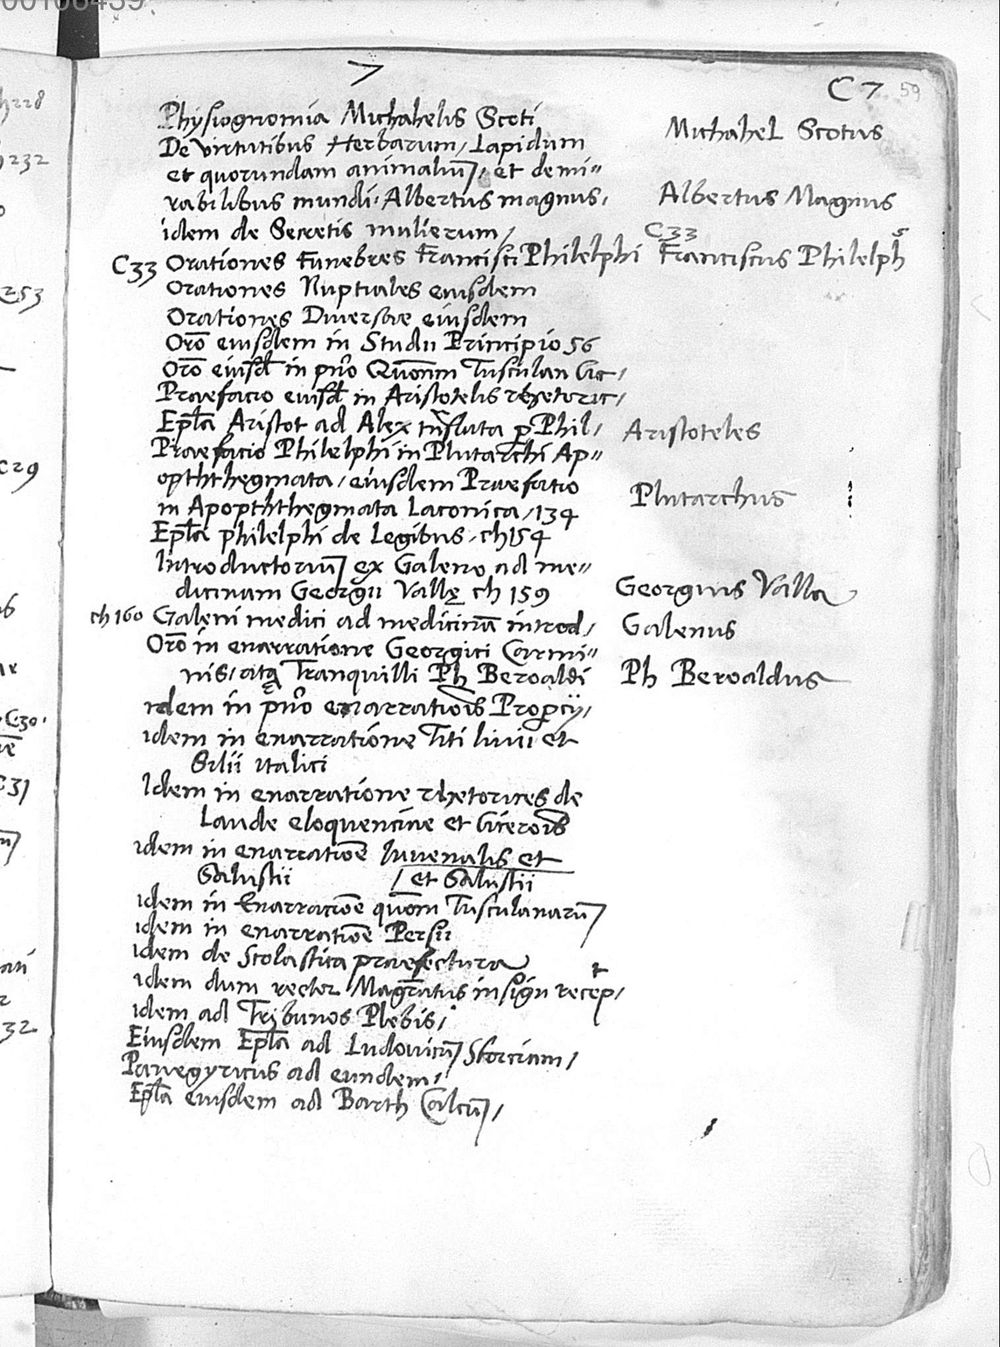 00106439
7
C 7 59
Physiognomia Michahelis Scoti Michahel Scotus
De virtutibus Herbarum/ Lapidum
et quorundam animaliū/ et de mi"
rabilibus mundi/ Albertus magnus/ Albertus Magnus
idem de Secretis mulierum/
C33 Orationes Funebres Francisci Philelphi C33 Franciscus Philelph9
Orationes Nuptiales eiusdem
Orationes Diversae eiusdem
Orō eiusdem in Studii Principio 56
Orō eiusd in pn̄o Quōm Tusculan Cic/
Praefacio eiusd in Aristotelis rhetoric/
Epl̄a Aristot ad Alex trn̄sluta p Phil/ Aristoteles
Praefacio Philelphi in Plutarchi Ap"
opththegmata/ eiusdem Praefatio
in Apopththegmata Laconica/ 134 Plutarchus
Epl̄a philelphi de Legibus/ ch154
Introductoriū ex Galeno ad me"
dicinam Georgii Vallę ch 159 Georgius Valla
ch160 Galeni medici ad medicinā introd/ Galenus
Orō in enarratione Georgici Carmi"
nis/ atq Tranquilli Ph Beroaldi Ph Beroaldus
idem in pn̄o enarratiois Propcij/
idem in enarratione Titi livii et
Silii italici
Idem in enarratione rhetorices de
Laude eloquenciae et Cicerois
idem in enarratiōe Iuvenalis et
Salustii / et Salustii
idem in Enarraciōe quōm Tusculanarū
idem in enarratiōe Persii
idem de Scolastica praefectura
idem dum rector Magratus insign recep/
idem ad Tribunos Plebis/
Eiusdem Epl̄a ad Ludovicū Sforciam/
Panegyricus ad eundem/
Epl̄a eiusdem ad Barth Calcū/